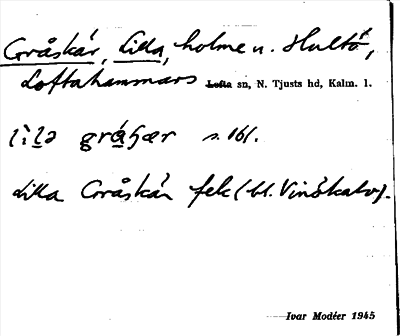 Gråskär, Lilla, holme n. Hultö,
Loftahammars Lofta sn, N. Tjusts hd, Kalm. l.
s. 161.
Lilla Gråskär fek (bl. Vinökalv).
Ivar Modéer 1945